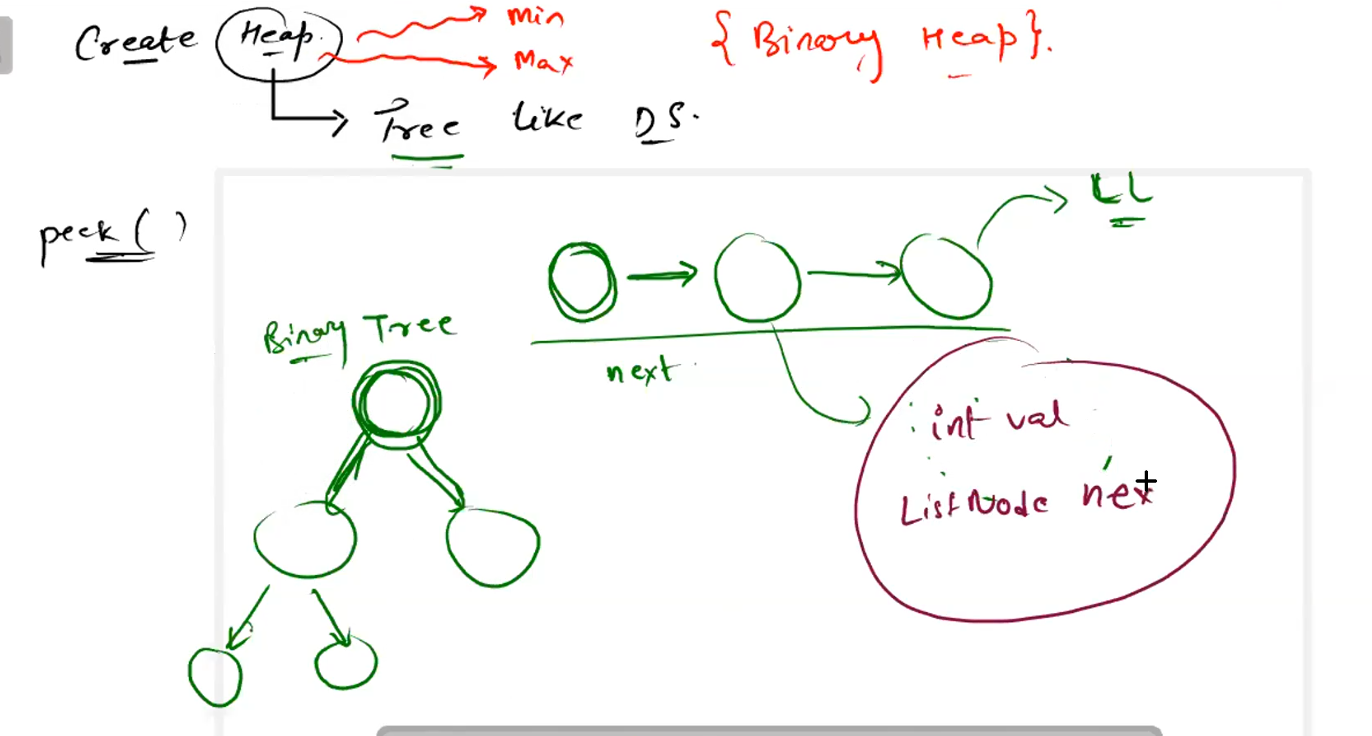 Create Heap. Min {Binary Heap}.
Max
Tree like DS.
LL
peek()
Binary Tree
next
int val
ListNode nex